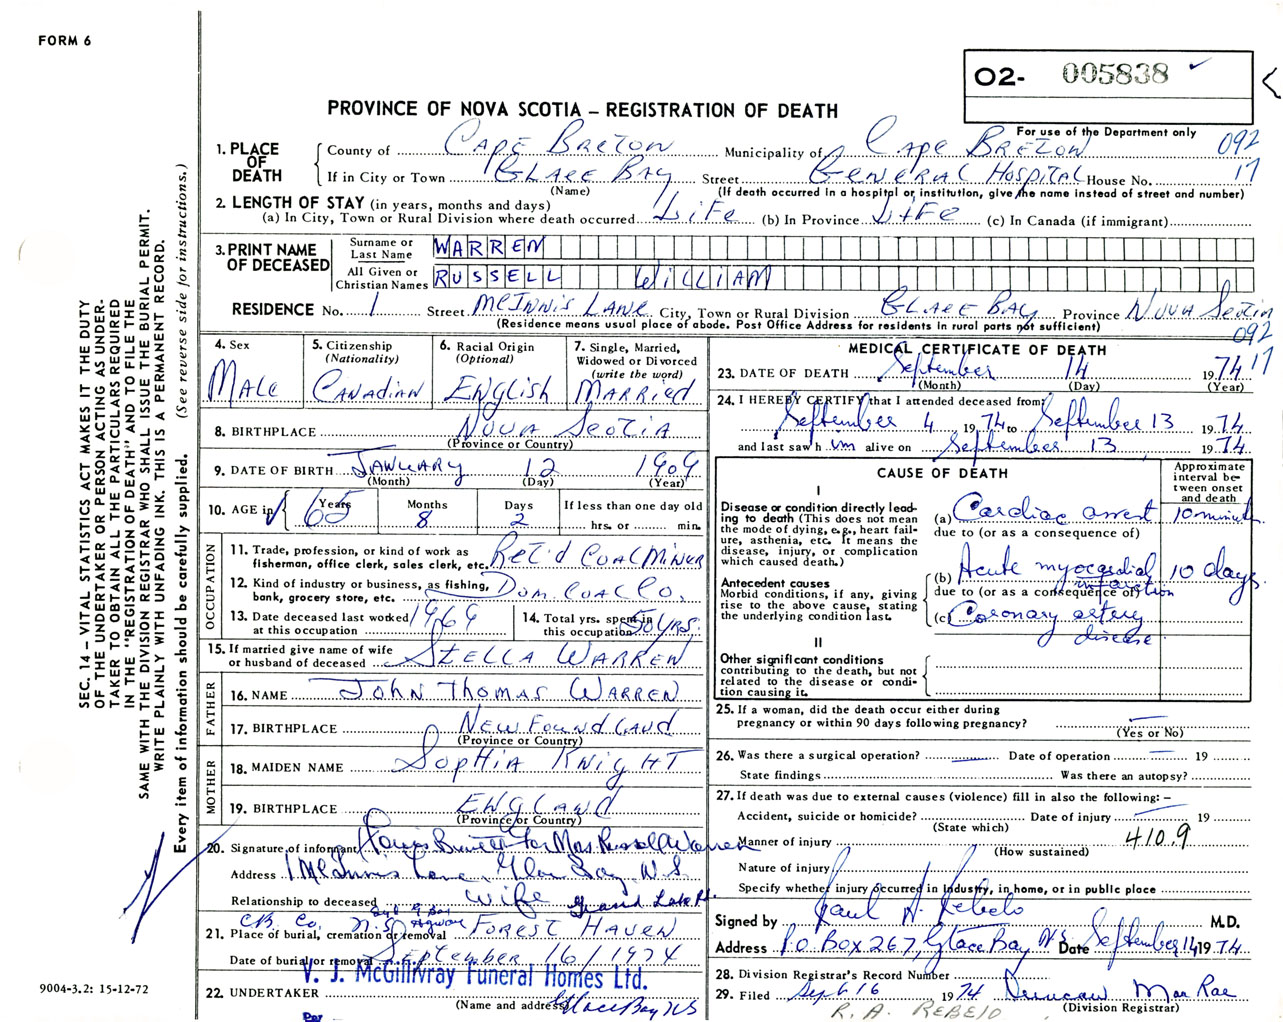 FORM 6
O2- 005838
PROVINCE OF NOVA SCOTIA – REGISTRATION OF DEATH
For use of the Department only
092
17
1. PLACE OF DEATH
County of CAPE BRETON Municipality of CAPE BRETON
If in City or Town GLACE BAY Street GENERAL HOSPITAL House No.
(Name) (If death occurred in a hospital or institution, give the name instead of street and number)
2. LENGTH OF STAY (in years, months and days)
(a) In City, Town or Rural Division where death occurred LIFE (b) In Province LIFE (c) In Canada (if immigrant)
3. PRINT NAME OF DECEASED
Surname or Last Name WARREN
All Given or Christian Names RUSSELL WILLIAM
RESIDENCE No. 1 Street McINNIS LANE City, Town or Rural Division GLACE BAY Province NOVA SCOTIA
(Residence means usual place of abode. Post Office Address for residents in rural parts not sufficient)
092
17
4. Sex MALE
5. Citizenship (Nationality) CANADIAN
6. Racial Origin (Optional) ENGLISH
7. Single, Married, Widowed or Divorced (write the word) MARRIED
8. BIRTHPLACE NOVA SCOTIA
(Province or Country)
9. DATE OF BIRTH JANUARY 12 1909
(Month) (Day) (Year)
10. AGE in Years 65 Months 8 Days 2 If less than one day old
hrs. or min.
OCCUPATION
11. Trade, profession, or kind of work as fisherman, office clerk, sales clerk, etc. RET'D COAL MINER
12. Kind of industry or business, as fishing, bank, grocery store, etc. DOM. COAL CO.
13. Date deceased last worked at this occupation 1969
14. Total yrs. spent in this occupation 50 YRS.
15. If married give name of wife or husband of deceased STELLA WARREN
FATHER
16. NAME JOHN THOMAS WARREN
17. BIRTHPLACE NEWFOUNDLAND
(Province or Country)
MOTHER
18. MAIDEN NAME SOPHIA KNIGHT
19. BIRTHPLACE ENGLAND
(Province or Country)
20. Signature of informant for Mrs. Russel Warren
Address 1 McInnis Lane, Glace Bay N.S.
Relationship to deceased Wife Grand Lake Rd.
C.B. Co. N.S.
21. Place of burial, cremation or removal FOREST HAVEN
Date of burial or removal September 16/1974
V. J. McGillivray Funeral Homes Ltd.
22. UNDERTAKER
(Name and address) Glace Bay NS
Per
MEDICAL CERTIFICATE OF DEATH
23. DATE OF DEATH September 14 1974
(Month) (Day) (Year)
24. I HEREBY CERTIFY that I attended deceased from
September 4 1974 to September 13 1974
and last saw him alive on September 13 1974
CAUSE OF DEATH
Approximate interval between onset and death
I
Disease or condition directly leading to death (This does not mean the mode of dying, e.g., heart failure, asthenia, etc. It means the disease, injury, or complication which caused death.)
(a) Cardiac arrest 10 minutes
due to (or as a consequence of)
Antecedent causes
Morbid conditions, if any, giving rise to the above cause, stating the underlying condition last.
(b) Acute myocardial infarction 10 days
due to (or as a consequence of)
(c) Coronary artery disease
II
Other significant conditions
contributing to the death, but not related to the disease or condition causing it.
25. If a woman, did the death occur either during pregnancy or within 90 days following pregnancy? —
(Yes or No)
26. Was there a surgical operation? — Date of operation — 19
State findings Was there an autopsy?
27. If death was due to external causes (violence) fill in also the following: –
Accident, suicide or homicide? Date of injury — 19
(State which)
Manner of injury 410.9
(How sustained)
Nature of injury
Specify whether injury occurred in industry, in home, or in public place
Signed by Raul A. Rebelo M.D.
Address P.O. Box 267, Glace Bay N.S. Date September 14, 1974
28. Division Registrar's Record Number
29. Filed Sept 16 1974 Duncan MacRae
(Division Registrar)
R. A. REBELO
SEC. 14 – VITAL STATISTICS ACT MAKES IT THE DUTY
OF THE UNDERTAKER OR PERSON ACTING AS UNDER-
TAKER TO OBTAIN ALL THE PARTICULARS REQUIRED
IN THE "REGISTRATION OF DEATH" AND TO FILE THE
SAME WITH THE DIVISION REGISTRAR WHO SHALL ISSUE THE BURIAL PERMIT.
WRITE PLAINLY WITH UNFADING INK. THIS IS A PERMANENT RECORD.
Every item of information should be carefully supplied. (See reverse side for instructions.)
9004-3.2: 15-12-72